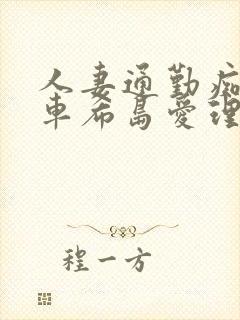 人妻通勤痴
車希島愛理
程一方